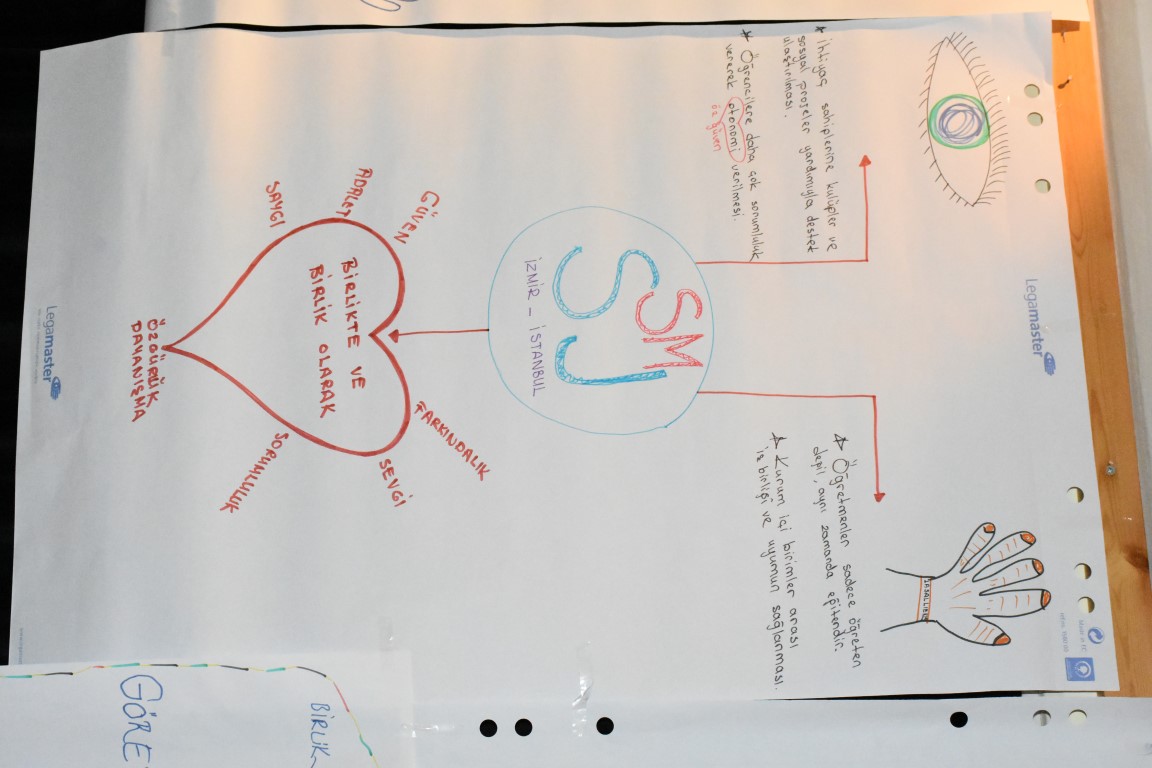 * İhtiyaç sahiplerine kulüpler ve
sosyal projeler yardımıyla destek
ulaştırılması.
* Öğrencilere daha çok sorumluluk
vererek otonomi verilmesi.
öz güven
* Öğretmenler sadece öğreten
değil, aynı zamanda eğitendir.
* Kurum içi birimler arası
iş birliği ve uyumun sağlanması.
SM
SJ
İZMİR - İSTANBUL
GÜVEN
ADALET
SAYGI
FARKINDALIK
SEVGİ
SORUMLULUK
BİRLİKTE VE
BİRLİK OLARAK
ÖZGÜRLÜK
DAYANIŞMA
Legamaster
Legamaster
BİRLİK
GÖRE